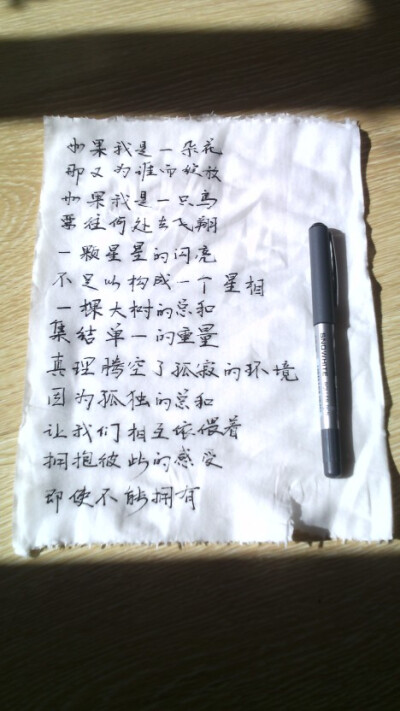 如果我是一朵花
那又为谁而绽放
如果我是一只鸟
要往何处去飞翔
一颗星星的闪亮
不足以构成一个星相
一棵大树的总和
集结单一的重量
真理腾空了孤寂的环境
因为孤独的总和
让我们相互依偎着
拥抱彼此的感受
即使不能拥有